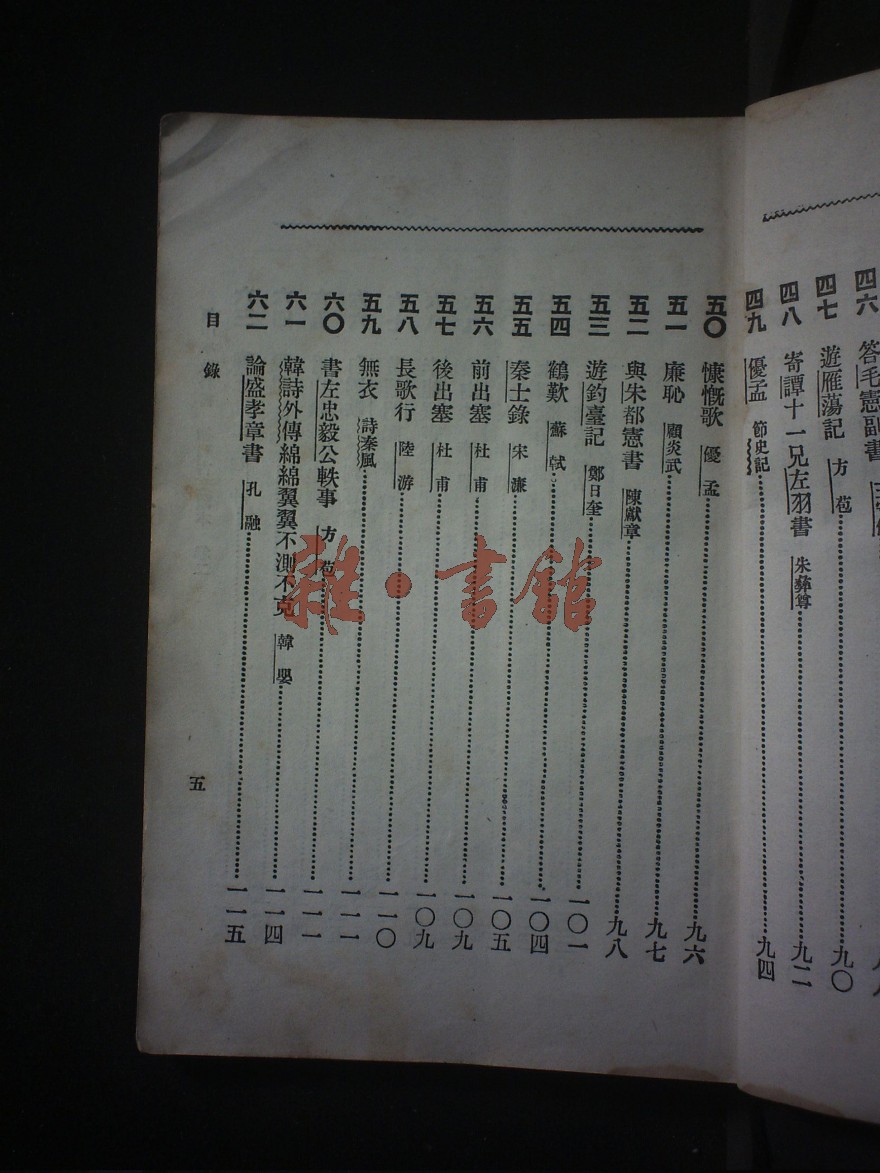 四六 答毛憲副書
四七 遊雁蕩記 方苞……九〇
四八 寄譚十一兄左羽書 朱彝尊……九二
四九 優孟 節史記……九四
五〇 慷慨歌 優孟……九六
五一 廉恥 顧炎武……九七
五二 與朱都憲書 陳獻章……九八
五三 遊釣臺記 鄭日奎……一〇一
五四 鶴歎 蘇軾……一〇四
五五 秦士錄 宋濂……一〇五
五六 前出塞 杜甫……一〇九
五七 後出塞 杜甫……一〇九
五八 長歌行 陸游……一一〇
五九 無衣 詩秦風……一一一
六〇 書左忠毅公軼事 方苞……一一一
六一 韓詩外傳綿綿翼翼不測不克 韓嬰……一一四
六二 論盛孝章書 孔融……一一五
目錄
五
雜·書館